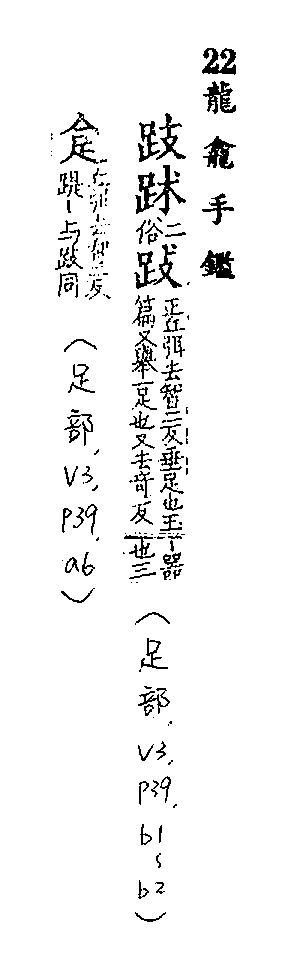 22龍龕手鑑
跂𧿲俗二跂正丘弭去智二反垂足也玉丨器
篇又舉一足也又去奇反一也三
（足部，V3，P39，b1~b2）
丘弭去智二反
踶丨与跂同
（足部，V3，P39，a6）